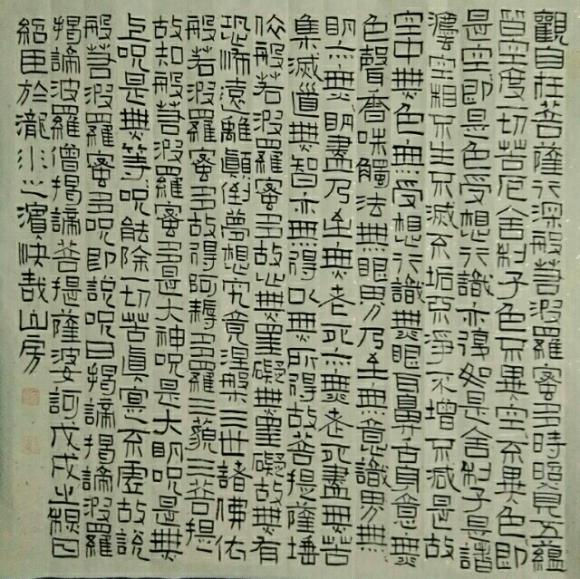 觀自在菩薩行深般若波羅蜜多時照見五蘊
皆空度一切苦厄舍利子色不異空不異色即
是空即是色受想行識亦復如是舍利子是諸
灋空相不生不滅不垢不淨不增不減是故
空中無色無受想行識無眼耳鼻舌身意無
色聲香味觸法無眼界乃至無意識界無
明亦無明盡乃至無老死亦無老死盡無苦
集滅道無智亦無得以無所得故菩提薩埵
依般若波羅蜜多故心無罣礙無罣礙故無有
恐怖遠離顛倒夢想究竟涅槃三世諸佛依
般若波羅蜜多故得阿耨多羅三藐三菩提
故知般若波羅蜜多是大神呪是大明呪是無
上呪是無等呪能除一切苦真實不虛故說
般若波羅蜜多呪即說呪曰揭諦揭諦波羅
揭諦波羅僧揭諦菩提薩婆訶戊戌之穐
紹臣於瀧水之濱快哉山房